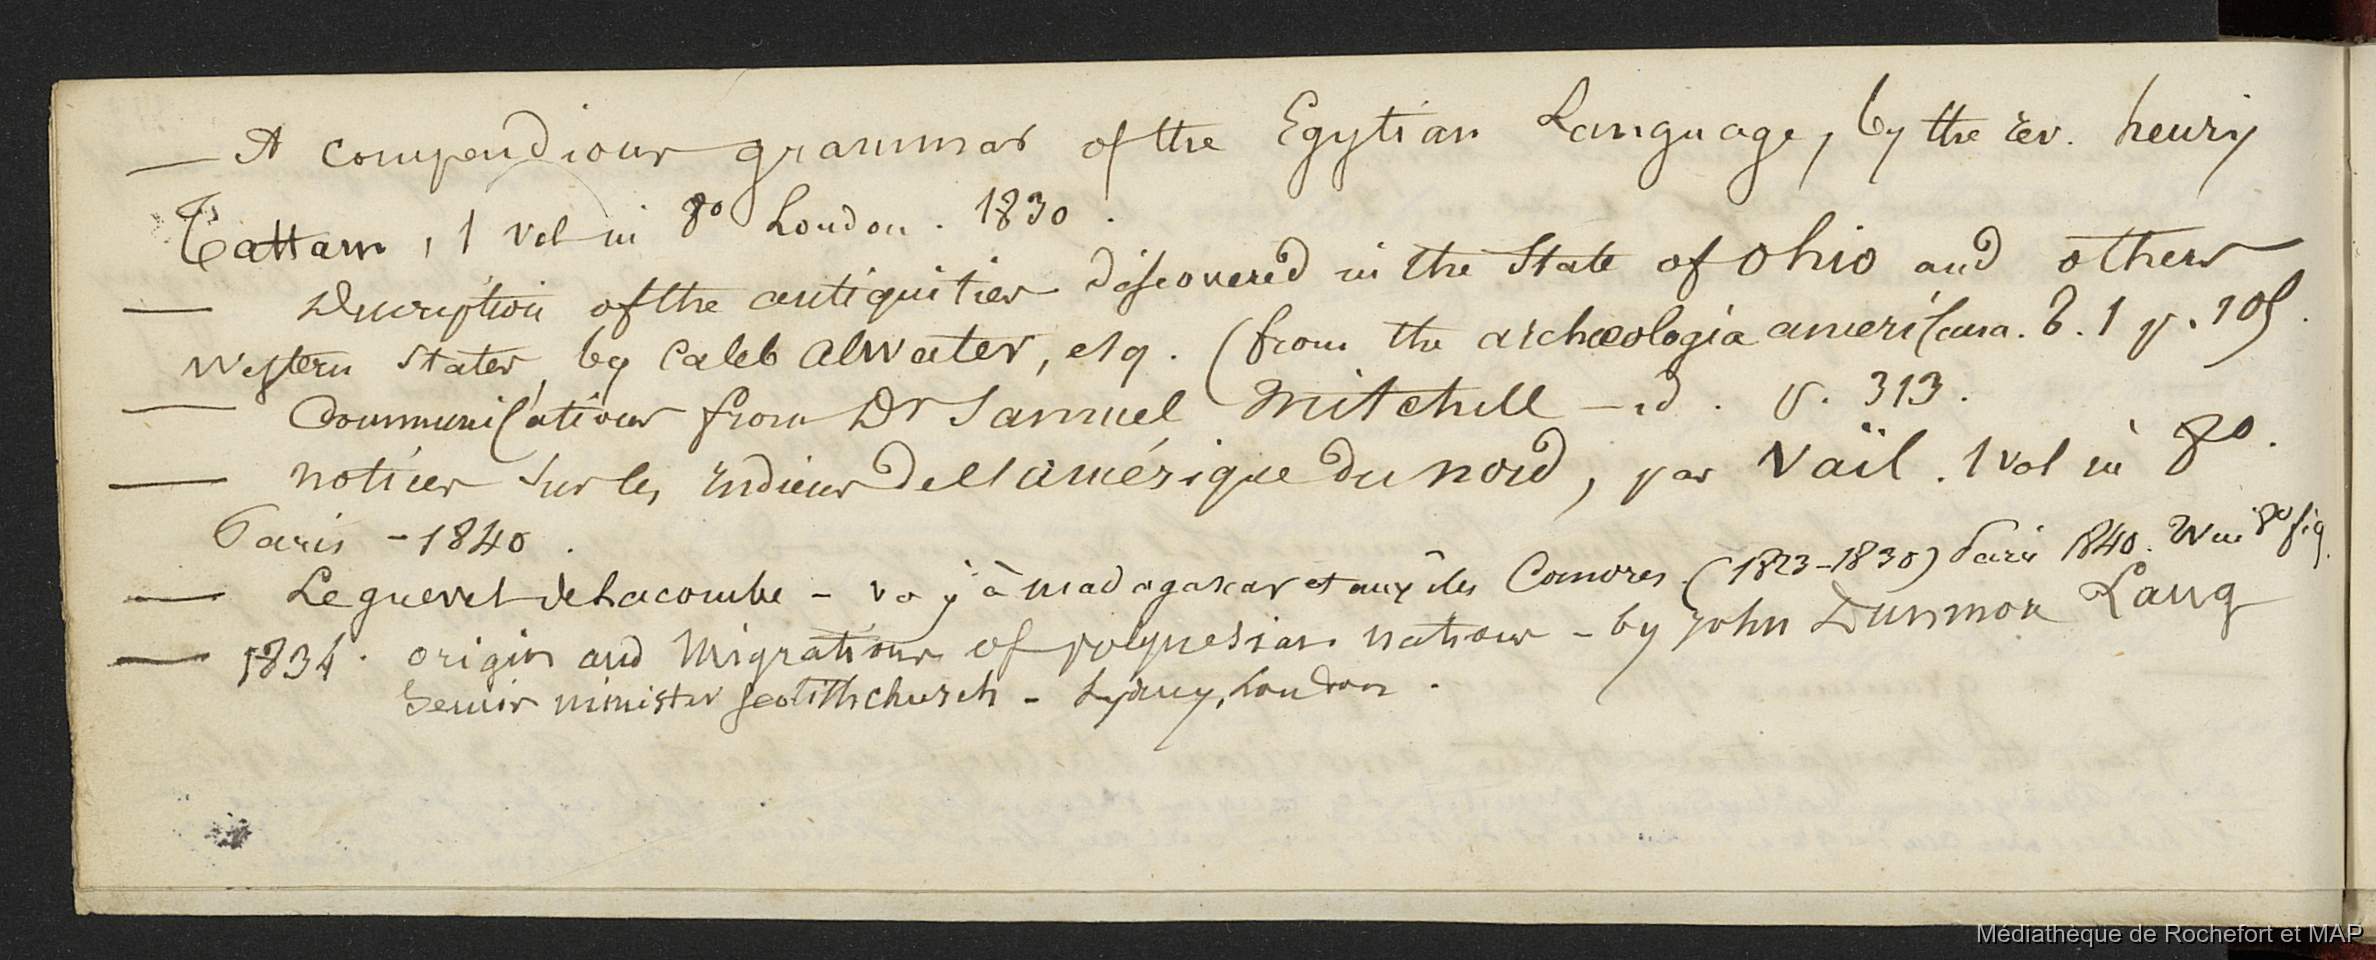 — A compendious grammar of the Egytian Language, by the rev. henry
Tattam, 1 vol in 8º London. 1830.
— Description of the antiquities discovered in the State of ohio and others
Western States, by Caleb atwater, esq. (from the archæologia americana. t. 1 p. 105.
— Communications from Dr Samuel Mitchell — id. p. 313.
— notices sur les indiens de l'amérique du nord, par Vaïl. 1 vol in 8º.
Paris - 1840.
— Leguevel de Lacombe - voy. à madagascar et aux îles Comores. (1823-1830) Paris 1840. in 8º fig.
— 1834. origin and Migrations of polynesian nations - by John Dunmore Lang
Senior minister scotish church - Sydney, London.
Médiathèque de Rochefort et MAP